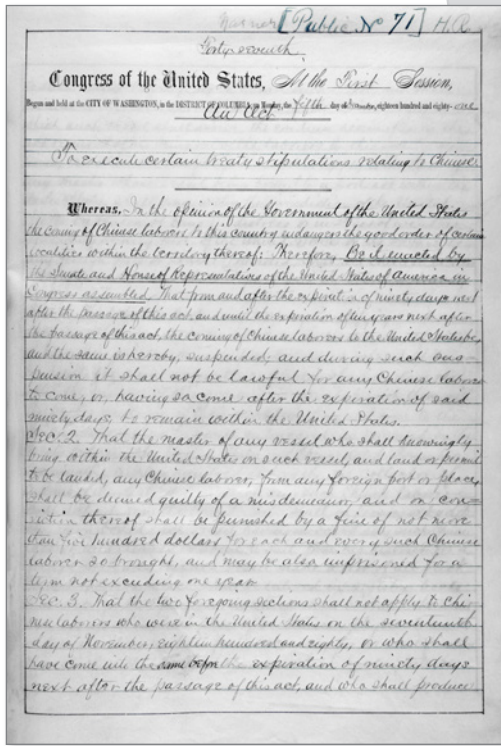 [Public No 71] H.R.
Forty-seventh
Congress of the United States, At the First Session,
Begun and held at the CITY OF WASHINGTON, in the DISTRICT OF COLUMBIA, on Monday, the fifth day of December, eighteen hundred and eighty-one
An Act
To execute certain treaty stipulations relating to Chinese.
Whereas, In the opinion of the Government of the United States
the coming of Chinese laborers to this country endangers the good order of certain
localities within the territory thereof: Therefore, Be it enacted by
the Senate and House of Representatives of the United States of America in
Congress assembled, That from and after the expiration of ninety days next
after the passage of this act, and until the expiration of ten years next after
the passage of this act, the coming of Chinese laborers to the United States be,
and the same is hereby, suspended; and during such sus-
pension it shall not be lawful for any Chinese laborer
to come, or, having so come after the expiration of said
ninety days, to remain within the United States.
Sec. 2. That the master of any vessel who shall knowingly
bring within the United States on such vessel, and land or permit
to be landed, any Chinese laborer, from any foreign port or place,
shall be deemed guilty of a misdemeanor, and on con-
viction thereof shall be punished by a fine of not more
than five hundred dollars for each and every such Chinese
laborer so brought, and may be also imprisoned for a
term not exceeding one year.
Sec. 3. That the two foregoing sections shall not apply to Chi-
nese laborers who were in the United States on the seventeenth
day of November, eighteen hundred and eighty, or who shall
have come into the same before the expiration of ninety days
next after the passage of this act, and who shall produce